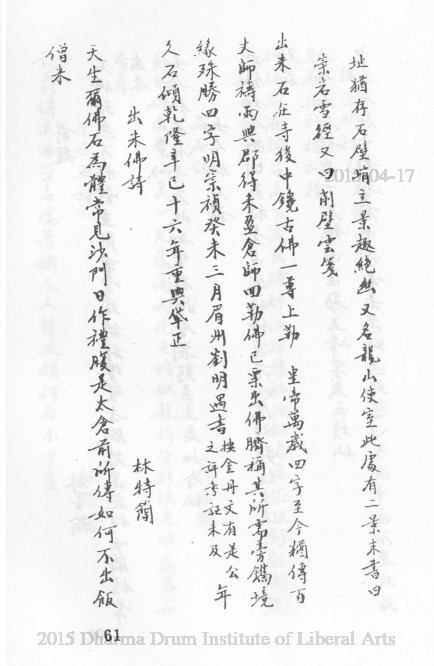 址猶存石壁峭立景趣絕幽又名龍山使室此處有二景未書曰
崇岩雪徑又曰削壁雲箋
出米石在寺後中鐫古佛一尊上勒 皇帝萬歲四字至今猶傳百
丈師禱雨興郡得米盈倉師四勒佛已粟出佛臍稱其所需旁鐫境
緣殊勝四字明崇禎癸未三月眉州劉明遇書 按金丹文有是公年
之詳考証未及
久石傾乾隆辛巳十六年重興肇正
出米佛詩
林特簡
天生爾佛石為體常見沙門日作禮腹是太倉前所傳如何不出飯
僧米
61
2015-04-17
2015 Dharma Drum Institute of Liberal Arts